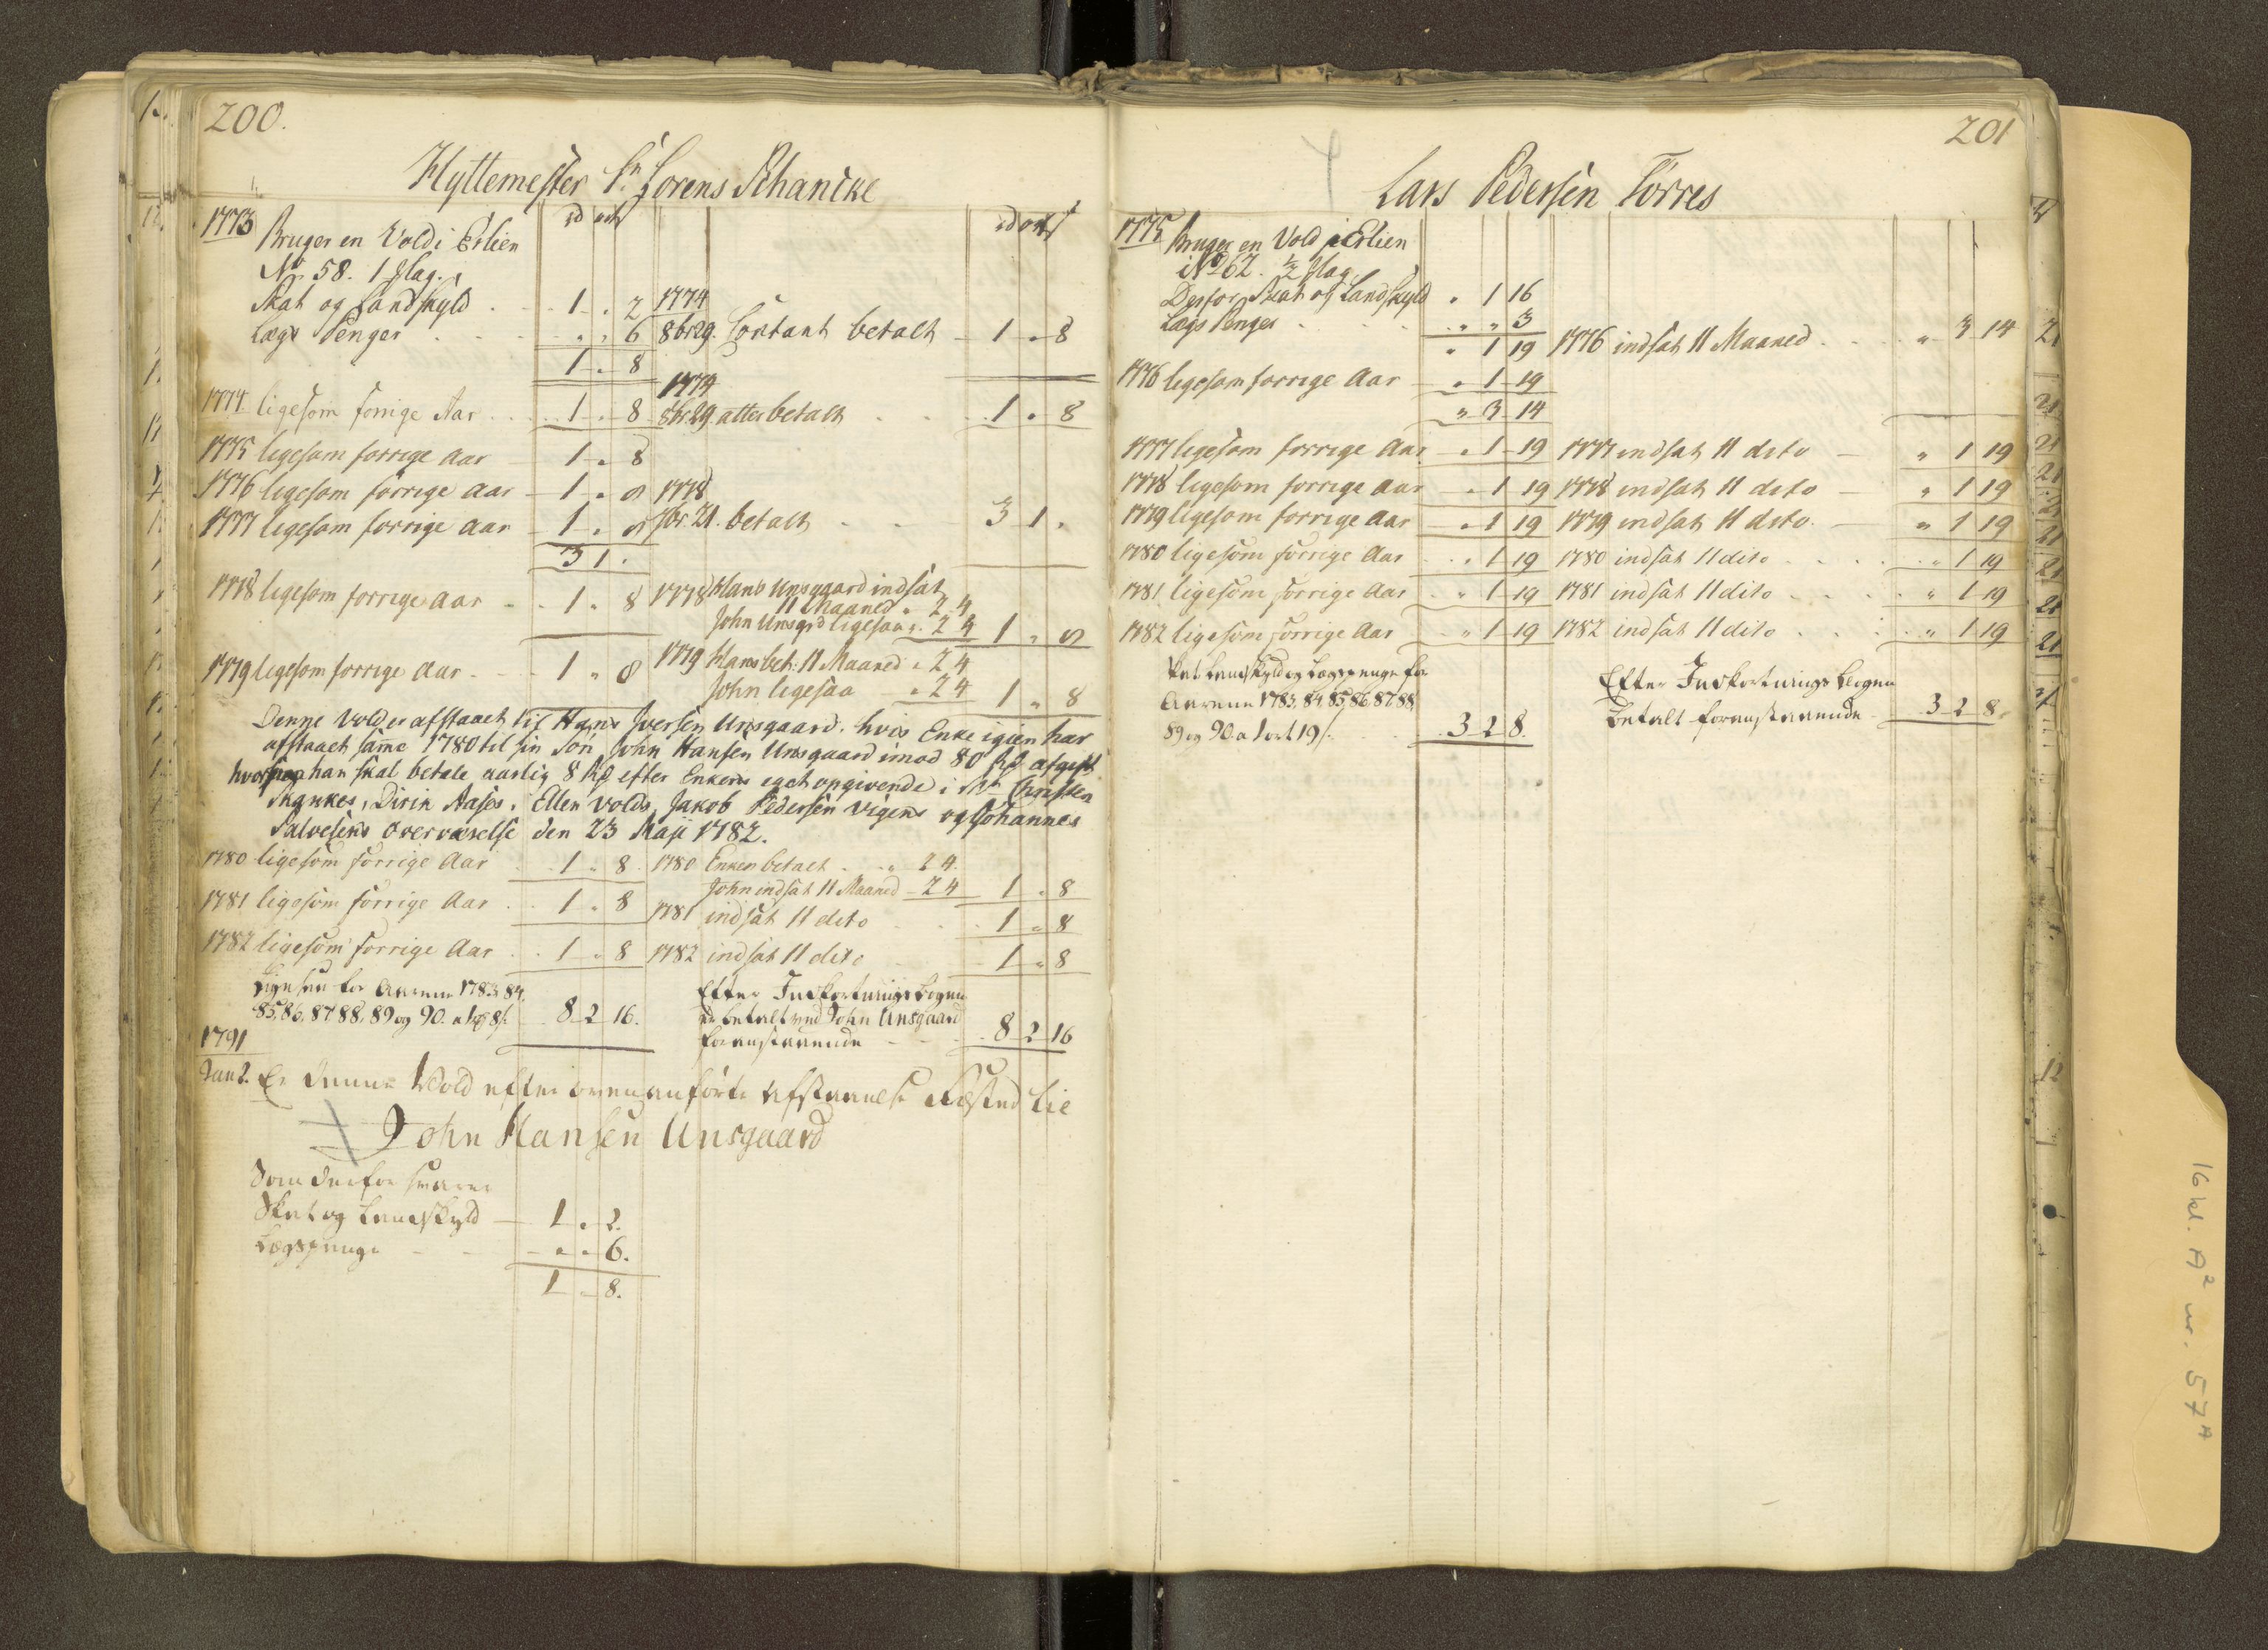 200.
Hyttemester Sr. Lorens Schancke
rd ort s
rd ort s
1773 Bruger en Vold i Erlien
No 58. 1 slag.
Skat og Landskyld . 1 " 2
Lægs Penger . . " " 6
1774
8br 29. Contant betalt 1 " 8
1 " 8
1774 ligesom forrige Aar . . 1 " 8
1774
8br 29. atter betalt . . 1 " 8
1775 ligesom forrige Aar 1 " 8
1776 ligesom forrige Aar 1 " 8
1777 ligesom forrige Aar 1 " 8
1778
7br 21. betalt . . 3 1 "
3 1 "
1778 ligesom forrige Aar . . 1 " 8
1778 Hans Unsgaard indsat
11 Maaned " 2 4
John Unsgrd ligesaa " 2 4 1 " 8
1779 ligesom forrige Aar . 1 " 8
1779 Hans bet: 11 Maaned " 2 4
John ligesaa " 2 4 1 " 8
Denne Vold er afstaaet til Hans Iversen Unsgaard. hvis Enke igien har
afstaaet samme 1780 til sin Søn John Hansen Unsgaard imod 80 rd afgift
han skal betale aarlig 8 rd efter Enkens eget opgivende i
Skankes, Dirik Aases, Ellen Volds, Jakob Pedersen Vigens og Johannes
Salvesens overværelse den 23 Maji 1782.
1780 ligesom forrige Aar . 1 " 8
1780 Enken betalt . . " 2 4
John indsat 11 Maaned 2 4 1 " 8
1781 ligesom forrige Aar . . 1 " 8
1781 indsat 11 dito . . 1 " 8
1782 ligesom forrige Aar . . 1 " 8
1782 indsat 11 dito 1 " 8
Ligesaa for Aarene 1783, 84,
85, 86, 87, 88, 89 og 90. a 1 rd 8 s. 8 2 16.
Efter Indkortnings bogen
er betalt ved John Unsgaard
foranstaaende . 8 2 16
1791
Jan 2. Er denne Vold efter ovenanførte afstaaelse fæsted til
John Hansen Unsgaard
Som derfor svarer
Skat og Landskyld 1 " 2.
Lægspenge " " 6.
1 " 8.
201
Lars Pedersen Tørres
1775 Bruger en Vold i Erlien
No 262. 1/2 slag.
Derfor Skat og Landskyld " 1 16
Lægs Penger . . . " " 3
" 1 19
1776 indsat 11 Maaned . . " 3 14
1776 ligesom forrige Aar " 1 19
" 3 14
1777 ligesom forrige Aar " 1 19 1777 indsat 11 dito " 1 19
1778 ligesom forrige Aar " 1 19 1778 indsat 11 dito " 1 19
1779 ligesom forrige Aar " 1 19 1779 indsat 11 dito. " 1 19
1780 ligesom forrige Aar . " 1 19 1780 indsat 11 dito . . . " 1 19
1781 ligesom forrige Aar . " 1 19 1781 indsat 11 dito . . . " 1 19
1782 ligesom forrige Aar " 1 19 1782 indsat 11 dito . . . " 1 19
Skat Landskyld og Lægspenge for
Aarene 1783, 84, 85, 86, 87, 88,
89 og 90. a 1 ort 19 s. . . 3 2 8.
Efter Indkortnings bogen
betalt foranstaaende 3 2 8.
16 kl. A² nr. 57ᴬ